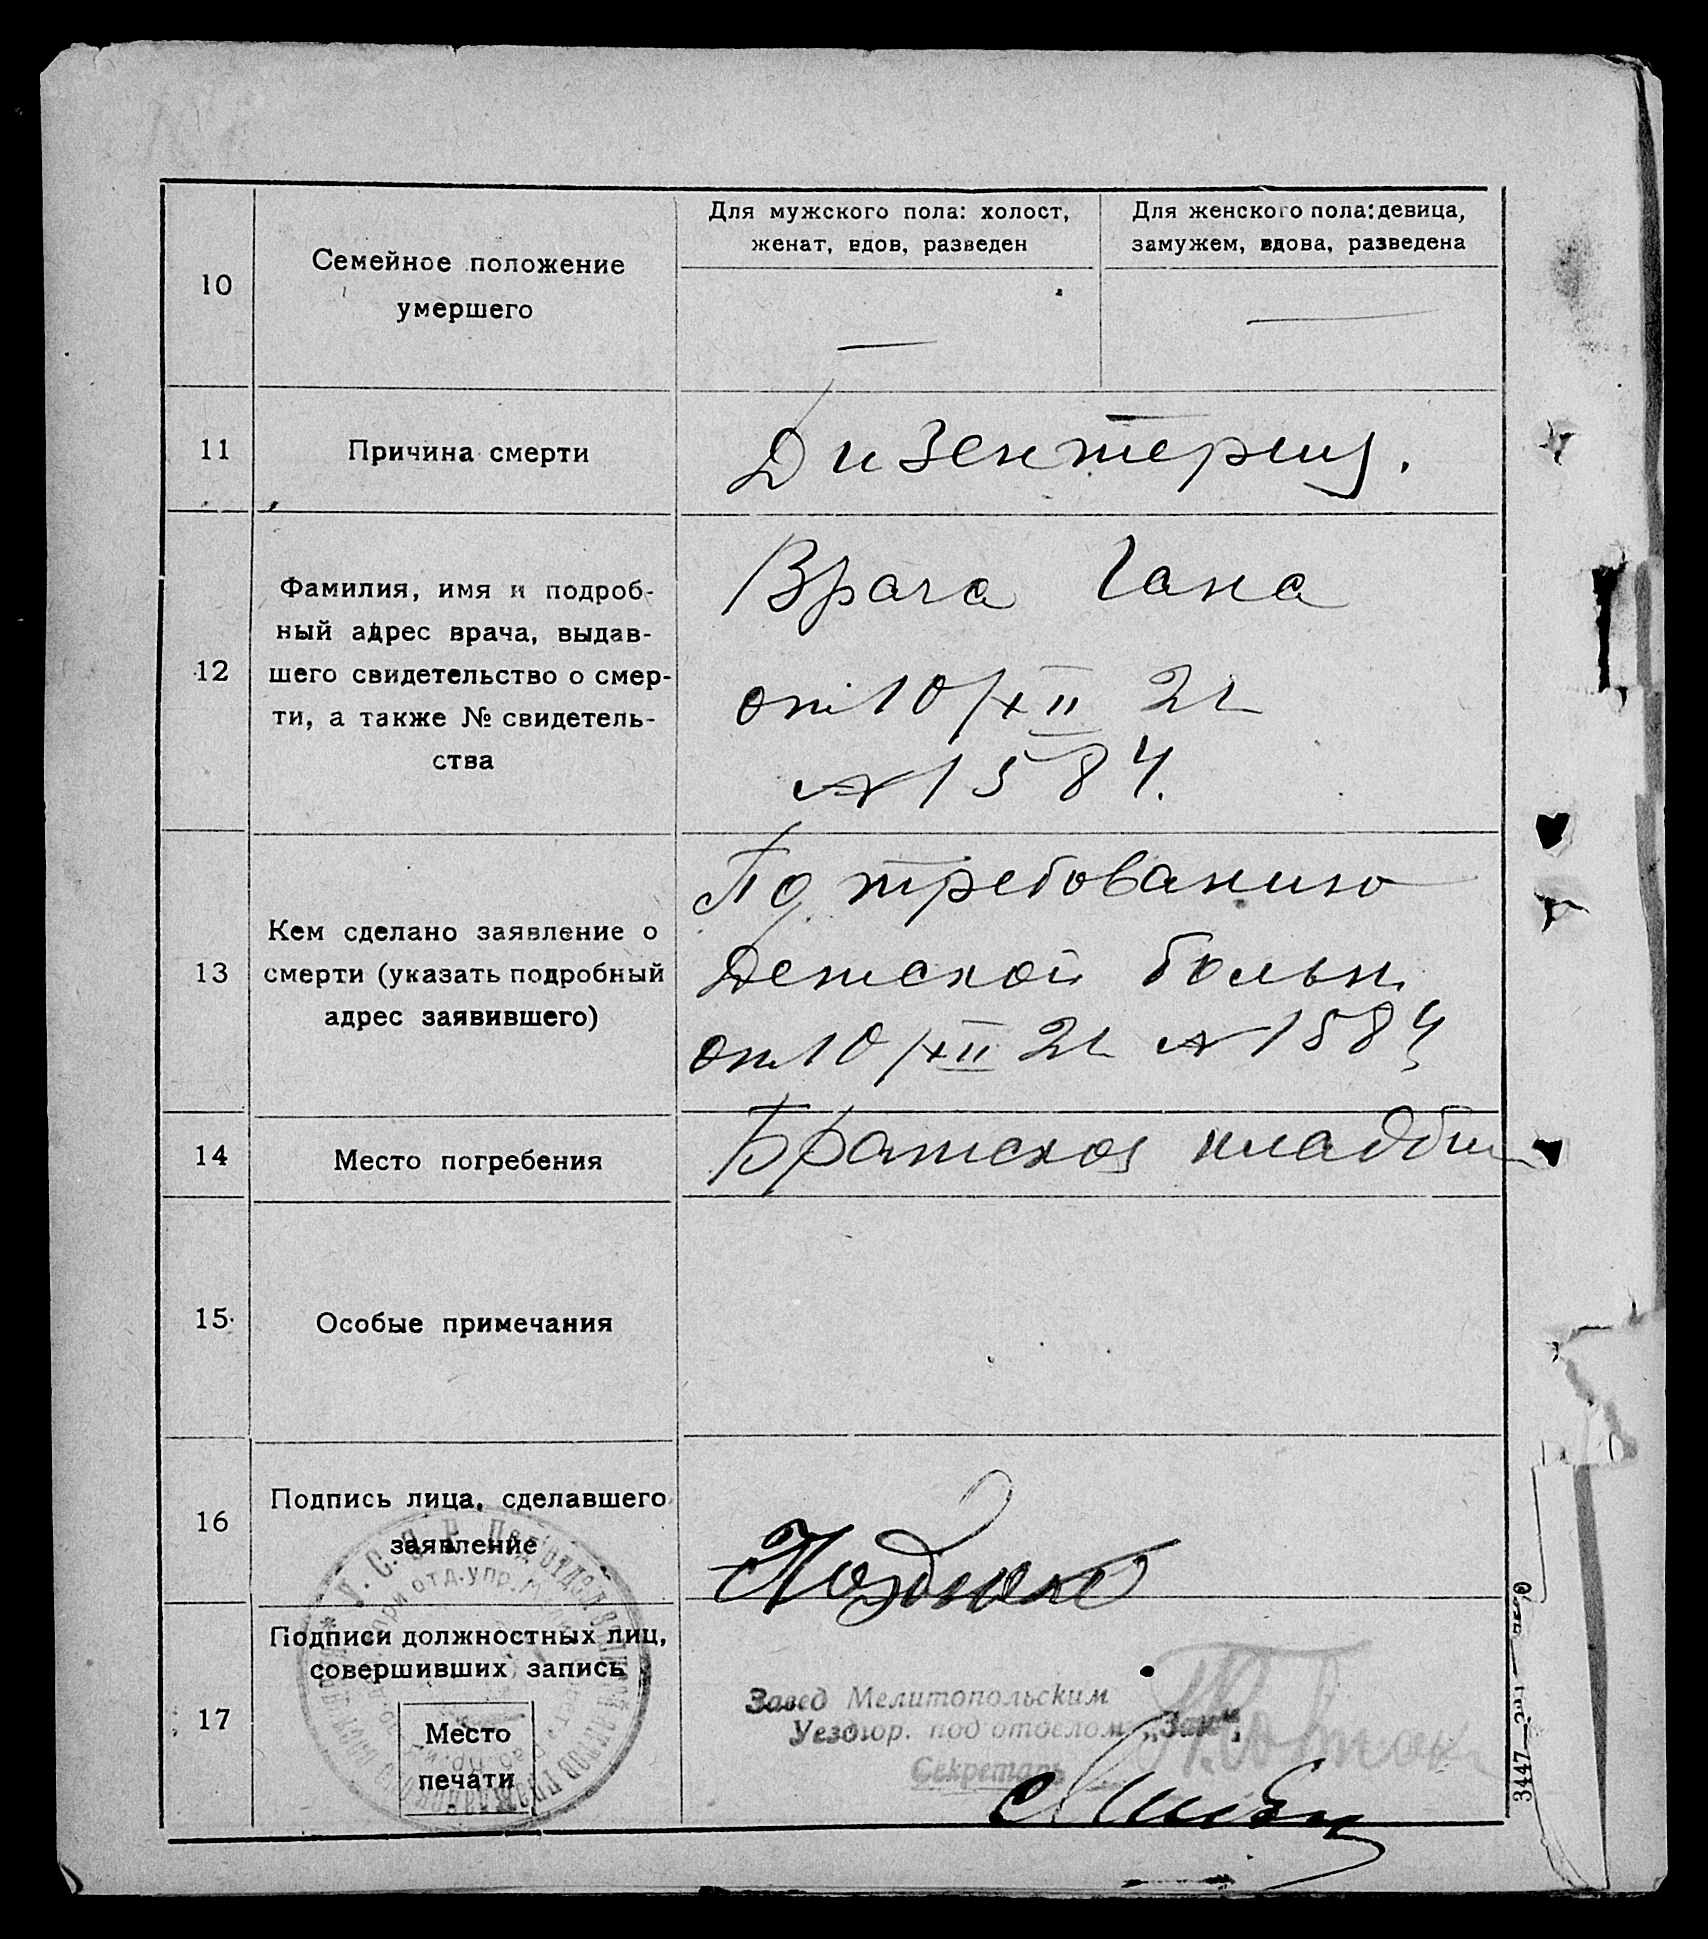 Для мужского пола: холост,
женат, вдов, разведен
Для женского пола: девица,
замужем, вдова, разведена
10
Семейное положение
умершего
—
—
11
Причина смерти
Дизентерия.
12
Фамилия, имя и подроб-
ный адрес врача, выдав-
шего свидетельство о смер-
ти, а также № свидетель-
ства
Врача Гана
от 10/XII 21
№ 1584.
13
Кем сделано заявление о
смерти (указать подробный
адрес заявившего)
По требованию
Детской больн.
от 10/XII 21 № 1584
14
Место погребения
Братское кладби
15
Особые примечания
16
Подпись лица, сделавшего
заявление
17
Подписи должностных лиц,
совершивших запись
Место
печати
Завед Мелитопольским
Уездюр. подотделом „Заг“,
Секретарь
3447